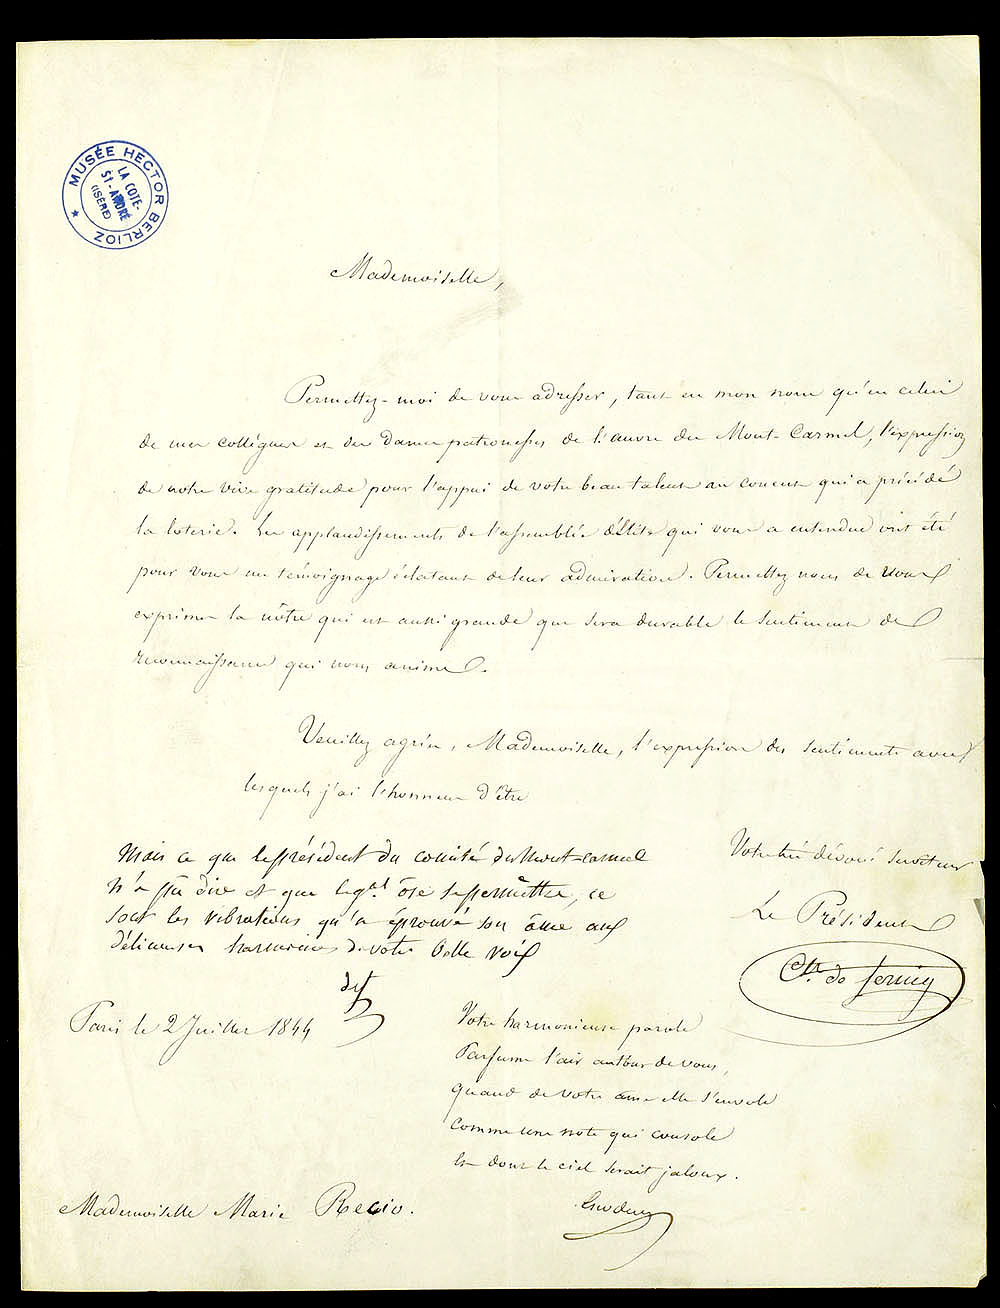 MUSÉE HECTOR BERLIOZ
LA COTE-
St-ANDRÉ
(ISÈRE)
Mademoiselle,
Permettez-moi de vous adresser, tant en mon nom qu'en celui
de mes collègues et des Dames patronesses de l'œuvre du Mont-Carmel, l'expression
de notre vive gratitude pour l'appui de votre beau talent au concert qui a précédé
la loterie. Les applaudissements de l'assemblée d'élite qui vous a entendue ont été
pour vous un témoignage éclatant de leur admiration. Permettez nous de vous
exprimer la nôtre qui est aussi grande que sera durable le sentiment de
reconnaissance qui nous anime.
Veuillez agréer, Mademoiselle, l'expression des sentiments avec
lesquels j'ai l'honneur d'être
Votre très dévoué serviteur
Le Président
Cte. de
Mais ce que le président du comité du Mont-Carmel
n'a pu dire et que le gal ose se permettre, ce
sont les vibrations qu'a éprouvé son âme aux
délicieuses harmonies de votre belle voix
Paris le 2 Juillet 1844
Votre harmonieuse parole
Parfume l'air autour de vous,
quand de votre âme elle s'envole
Comme une note qui console
Et dont le ciel serait jaloux.
Mademoiselle Marie Recio.